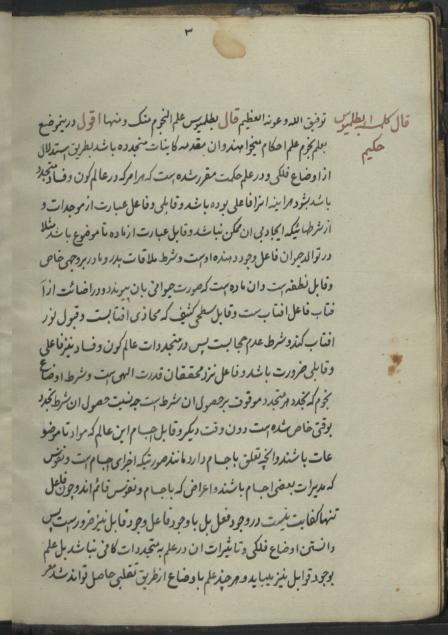 ٣
قال کلمه ا بطلمیوس
حکیم
توفیق الله وعونه العظیم قال بطلمیوس علم النجوم منک و منها اقول درین موضع
بعلم نجوم علم احکام میخواهد و ان مقدمه کاینات متجدده باشد بطریق استدلال
از اوضاع فلکی و در علم حکمت مقرر شده است که هر امر که در عالم کون و فساد متجدد
باشد بود هر اینه انرا فاعلی بوده باشد و قابلی و فاعل عبارت از موجدات و
از شرطها نیکه ایجاد بی ان ممکن نباشد و قابل عبارت از ماده تا موضوع باشد مثلا
در توالد حیوان فاعل وجود دهنده اوست و شرط ملاقات پدر و مادر بر وجهی خاص
و قابل نطفه است و ان ماده است که صورت حیوانی بان پیوندد و در اضائت از آ
فتاب فاعل افتاب ست و قابل سطحی کثیف که محاذی افتابست و قبول نور
افتاب کند و شرط عدم حجابست پس در متجددات عالم کون و فساد نیز فاعلی
و قابلی ضرورت باشد و فاعل نزد محققان قدرت الهی است و شرط اوضاع
نجوم که تجدد هر متجدد موقوف بر حصول ان شرط است چه نسبت حصول ان شرط تجدد
بوقتی خاص شده است دون وقت دیگر و قابل اجسام این عالم که مواد تا موضو
عات باشند و انچه تعلق باجسام دارد مانند صورتیکه اجزای اجسام است و نفوس
که مدبرات بعضی اجسام باشند و اعراض که باجسام و نفوس قائم اند و چون فاعل
تنها کفایت نیست در وجود فعل بل با وجود فاعل وجود قابل نیز ضرورست پس
دانستن اوضاع فلکی و تاثیرات ان در علم به متجددات کافی نباشد بل علم
بوجود قوابل نیز بباید و هر چند علم باوضاع از طریق تعلیمی حاصل تواند شد